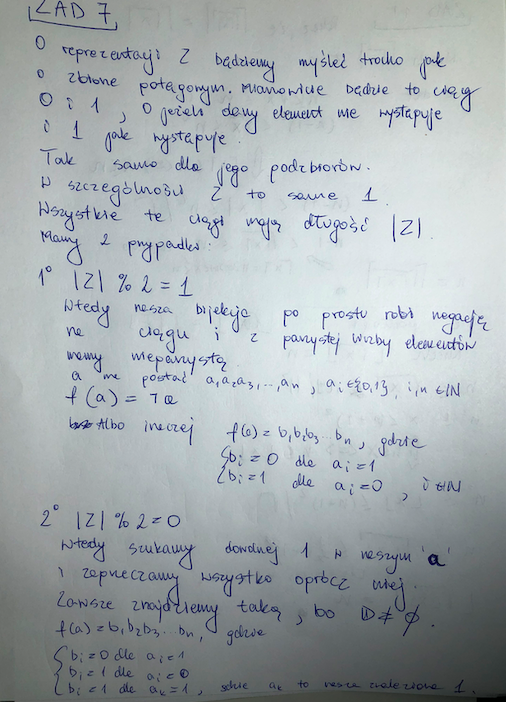 ZAD 7
O reprezentacji Z będziemy myśleć trochę jak
o zbiorze potęgowym. Mianowicie będzie to ciąg
0 i 1, 0 jeżeli dany element nie występuje
i 1 jak występuje.
Tak samo dla jego podzbiorów.
W szczególności Z to same 1.
Wszystkie te ciągi mają długość |Z|.
Mamy 2 przypadki:
1° |Z| % 2 = 1
Wtedy nasza bijekcja po prostu robi negację
na ciągu i z parzystej liczby elementów
mamy nieparzystą
a ma postać a₁a₂a₃,...,aₙ, aᵢ∈{0,1}, i,n ∈ℕ
f(a) = ¬a
Albo inaczej f(a) = b₁b₂b₃...bₙ, gdzie
{bᵢ=0 dla aᵢ=1
{bᵢ=1 dla aᵢ=0, i∈ℕ
2° |Z| % 2 = 0
Wtedy szukamy dowolnej 1 w naszym 'a'
i zaprzeczamy wszystko oprócz niej.
Zawsze znajdziemy taką, bo ≠ ∅.
f(a) = b₁b₂b₃...bₙ, gdzie
{bᵢ=0 dla aᵢ=1
{bᵢ=1 dla aᵢ=0
{bᵢ=1 dla aₖ=1, gdzie aₖ to nasza znaleziona 1.